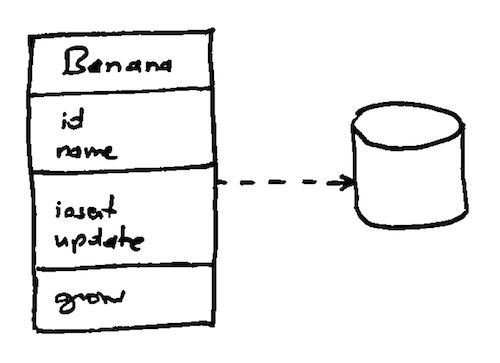 Banana
id
name
insert
update
grow